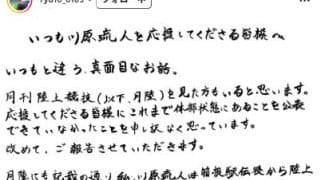 いつも川原琉人を応援してくださる皆様へ
いつもと違う、真面目なお話。
月刊陸上競技(以下、月陸)を見た方もいると思います。
応援してくださる皆様にこれまで休部状態にあることを公表
できていなかったことを申し訳なく思っています。
改めて、ご報告させていただきます。
月陸にも記載の通り、私、川原琉人は箱根駅伝後から陸上